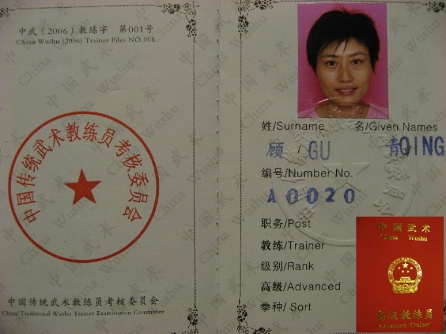 中武（2006）教练字 第001号
China Wushu (2006) Trainer Files NO.001
中国传统武术教练员考核委员会
中国传统武术教练员考核委员会
China Traditional Wushu Trainer Examination Committee
姓/Surname 名/Given Names
顾 / GU 青QING
编号/Number No.
A0020
职务/Post
教练/Trainer
级别/Rank
高级/Advanced
拳种/ Sort
中国武术
China Wushu
高级教练员
Advanced Trainer